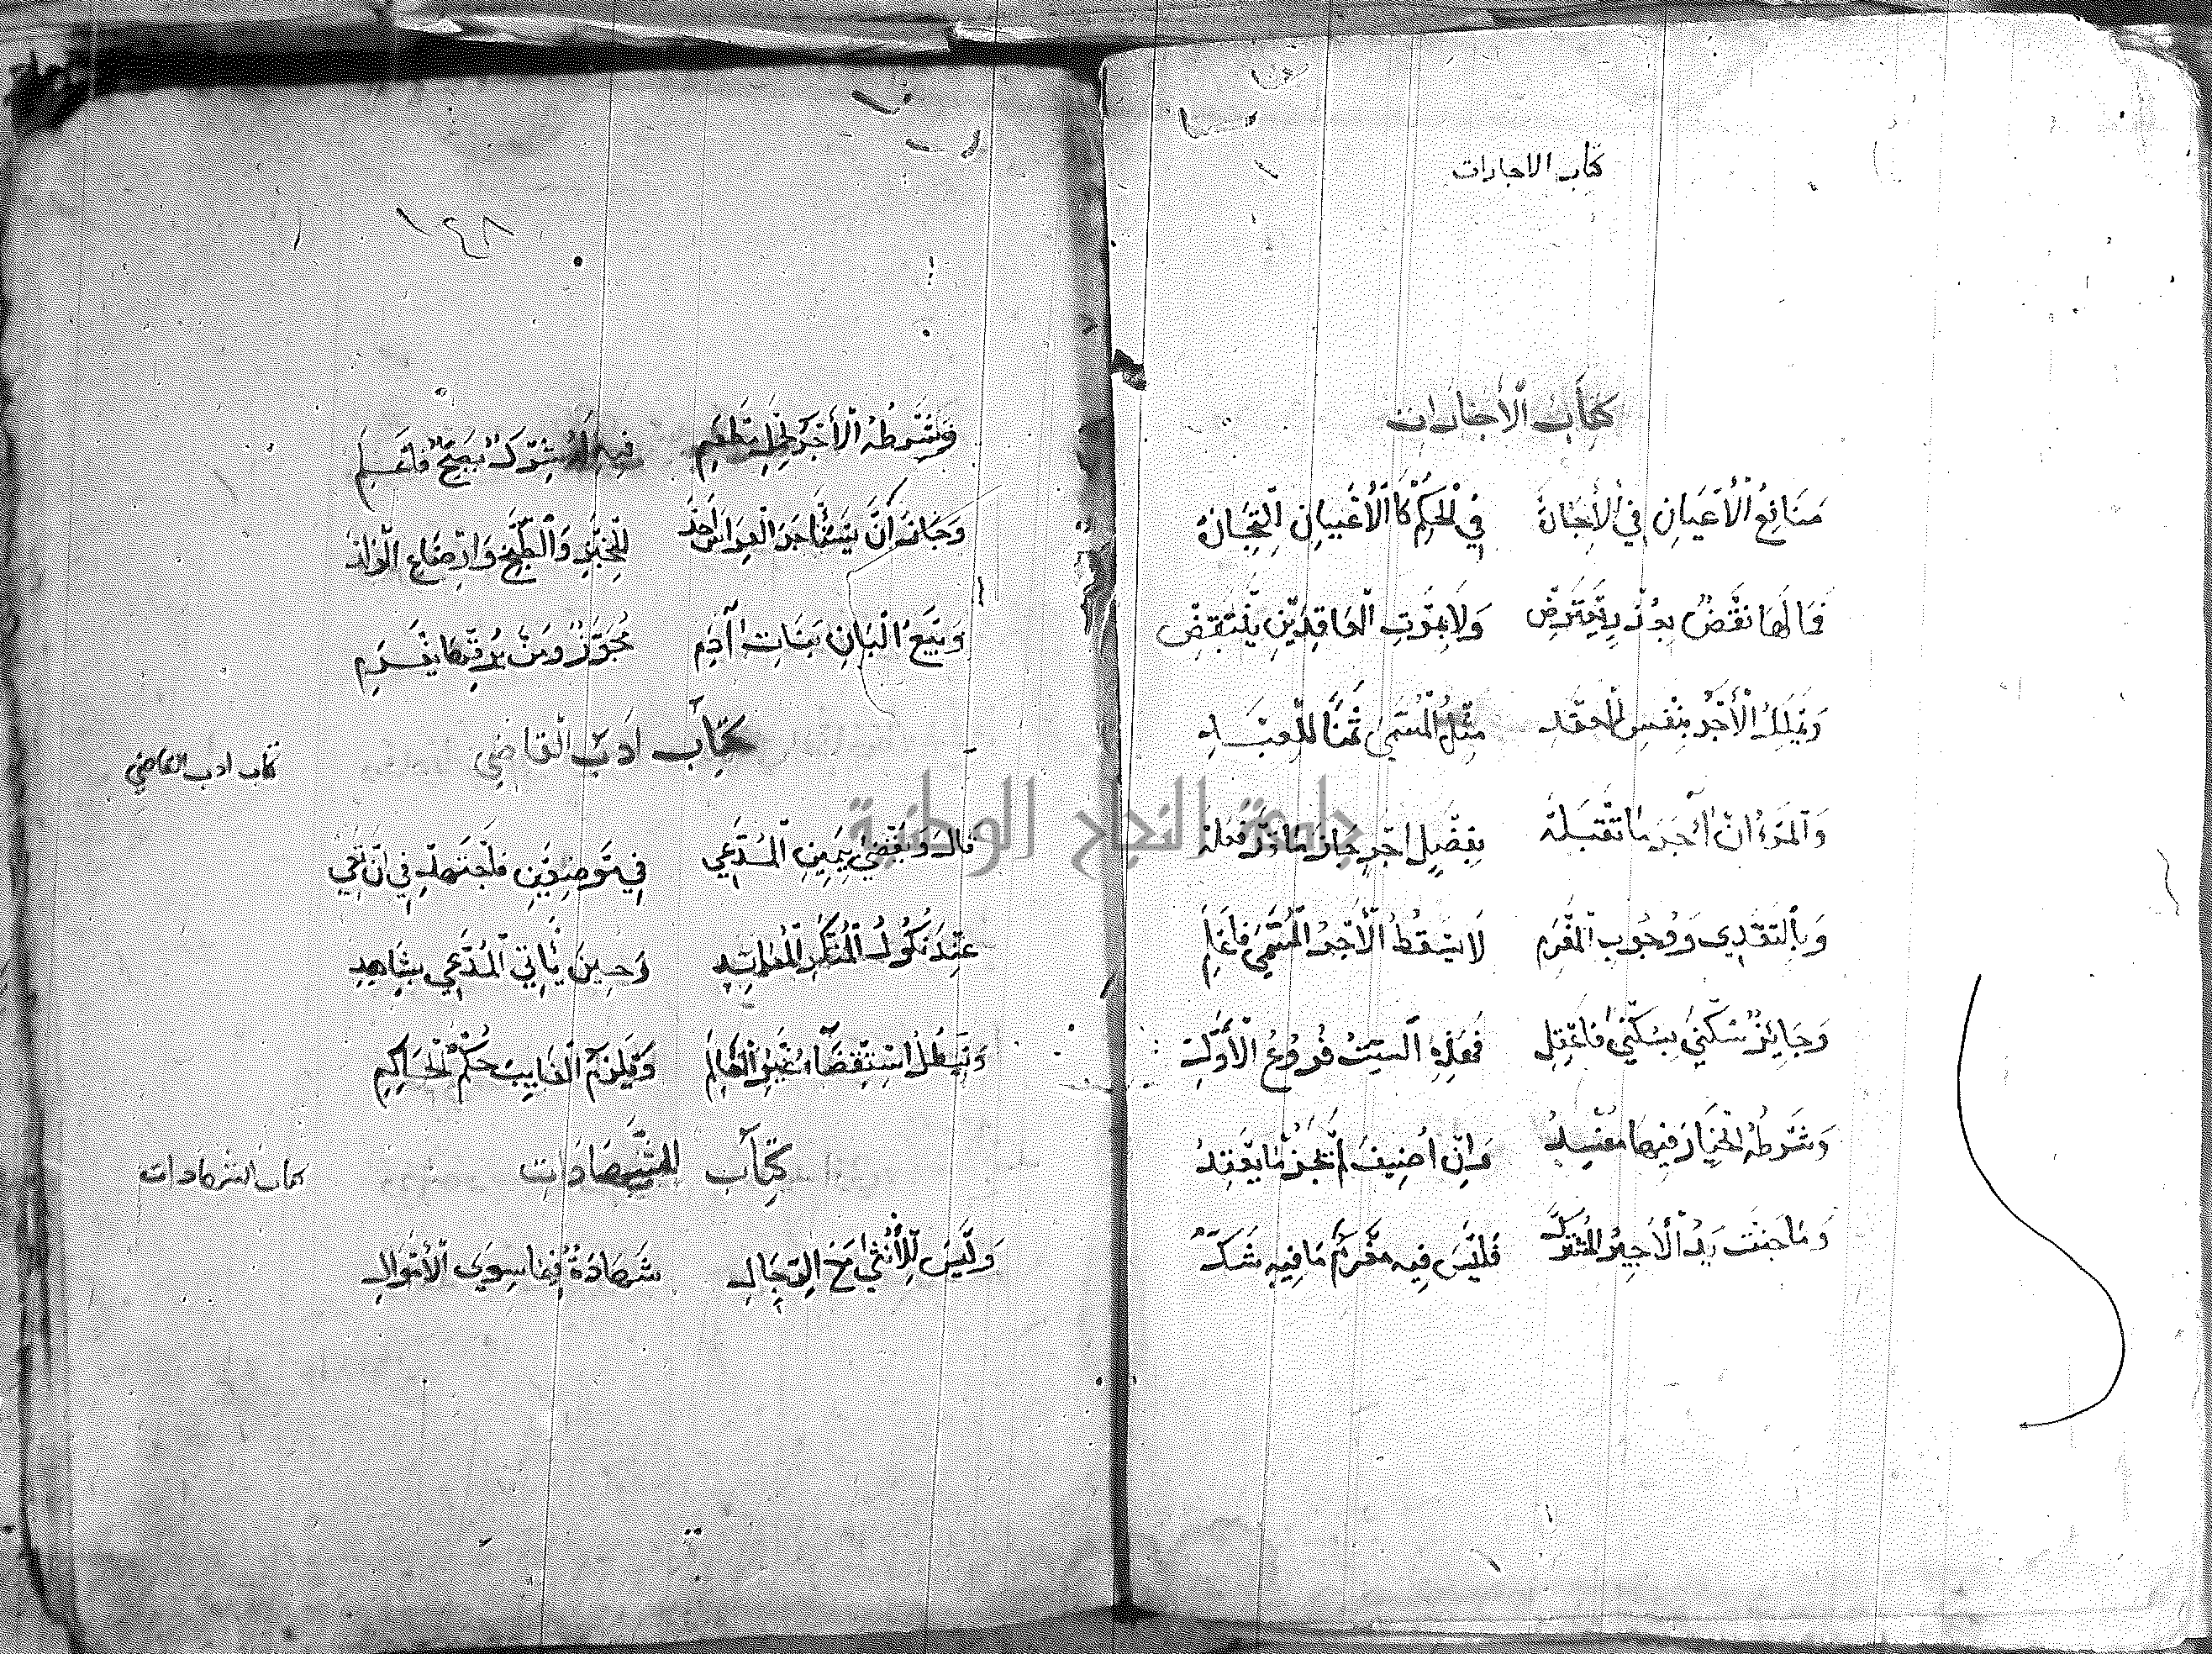 كتاب الاجارات
كِتَابُ الْأِجَارَاتِ
مَنَافِعُ الْأَعْيَانِ فِي الْأِجَارَةْ فِي الْحُكْمِ كَالْأَعْيَانِ فِي التِّجَارَةْ
فَمَا لَهَا نَقْضٌ بِعُذْرٍ يَعْتَرِضْ وَلَا بِمَوْتِ الْعَاقِدَيْنِ يَنْتَقِضْ
وَيُمْلَكُ الْأَجْرُ بِنَفْسِ الْعَقْدِ مِثْلُ الْمُسَمَّى ثَمَنًا لِلْعَبْدِ
وَالْمَرْءُ إِنْ آجَرَ مَا تَقَبَّلَهْ بِفَضْلِ أَجْرٍ جَازَ مَا قَدْ فَعَلَهْ
وَبِالتَّعَدِّي وَوُجُوبِ الْمَغْرَمِ لَا يَسْقُطُ الْأَجْرُ الْمُسَمَّى فَاعْلَمِ
وَجَائِزٌ سُكْنَى بِسُكْنَى فَاعْقِلِ فَهَذِهِ السِّتُّ فُرُوعُ الْأَوَّلِ
وَشَرْطُهُ الْخِيَارَ فِيهَا مُفْسِدُ وَإِنْ أُضِيفَ لَمْ يَجُزْ مَا يَعْقِدُ
وَمَا جَنَتْ يَدُ الْأَجِيرِ الْمُشْتَرَكْ فَلَيْسَ فِيهِ مَغْرَمٌ مَا فِيهِ شَكّْ
١٤٨
وَشَرْطُهُ الْأَجْرَ لِحَمْلِ مَطْعَمِ فِيهِ لَهُ شِرْكٌ يَصِحُّ فَاعْلَمِ
وَجَازَ أَنْ يَسْتَأْجِرَ الْعِرْسَ أَحَدْ لِلْخَبْزِ وَالطَّبْخِ وَإِرْضَاعِ الْوَلَدْ
وَبَيْعُ أَلْبَانِ بَنَاتِ آدَمِ مُجَوَّزٌ وَمَنْ يُرِقْهَا يَغْرَمِ
كِتَابُ أَدَبِ الْقَاضِي
كتاب ادب القاضي
قَالَ وَيَقْضِي بِيَمِينِ الْمُدَّعِي فِي مَوْضِعَيْنِ فَاجْتَهِدْ فِي أَنْ تَعِي
عِنْدَ نُكُولِ الْمُنْكِرِ الْمُعَانِدِ وَحِينَ يَأْتِي الْمُدَّعِي بِشَاهِدِ
وَيَبْطُلُ اسْتِقْضَاءُ غَيْرِ الْعَالِمِ وَيَلْزَمُ الْغَايِبَ حُكْمُ الْحَاكِمِ
كِتَابُ الشَّهَادَاتِ
كتاب الشهادات
وَلَيْسَ لِلْأُنْثَى مَعَ الرِّجَالِ شَهَادَةٌ فِيمَا سِوَى الْأَمْوَالِ
جامعة النجاح الوطنية